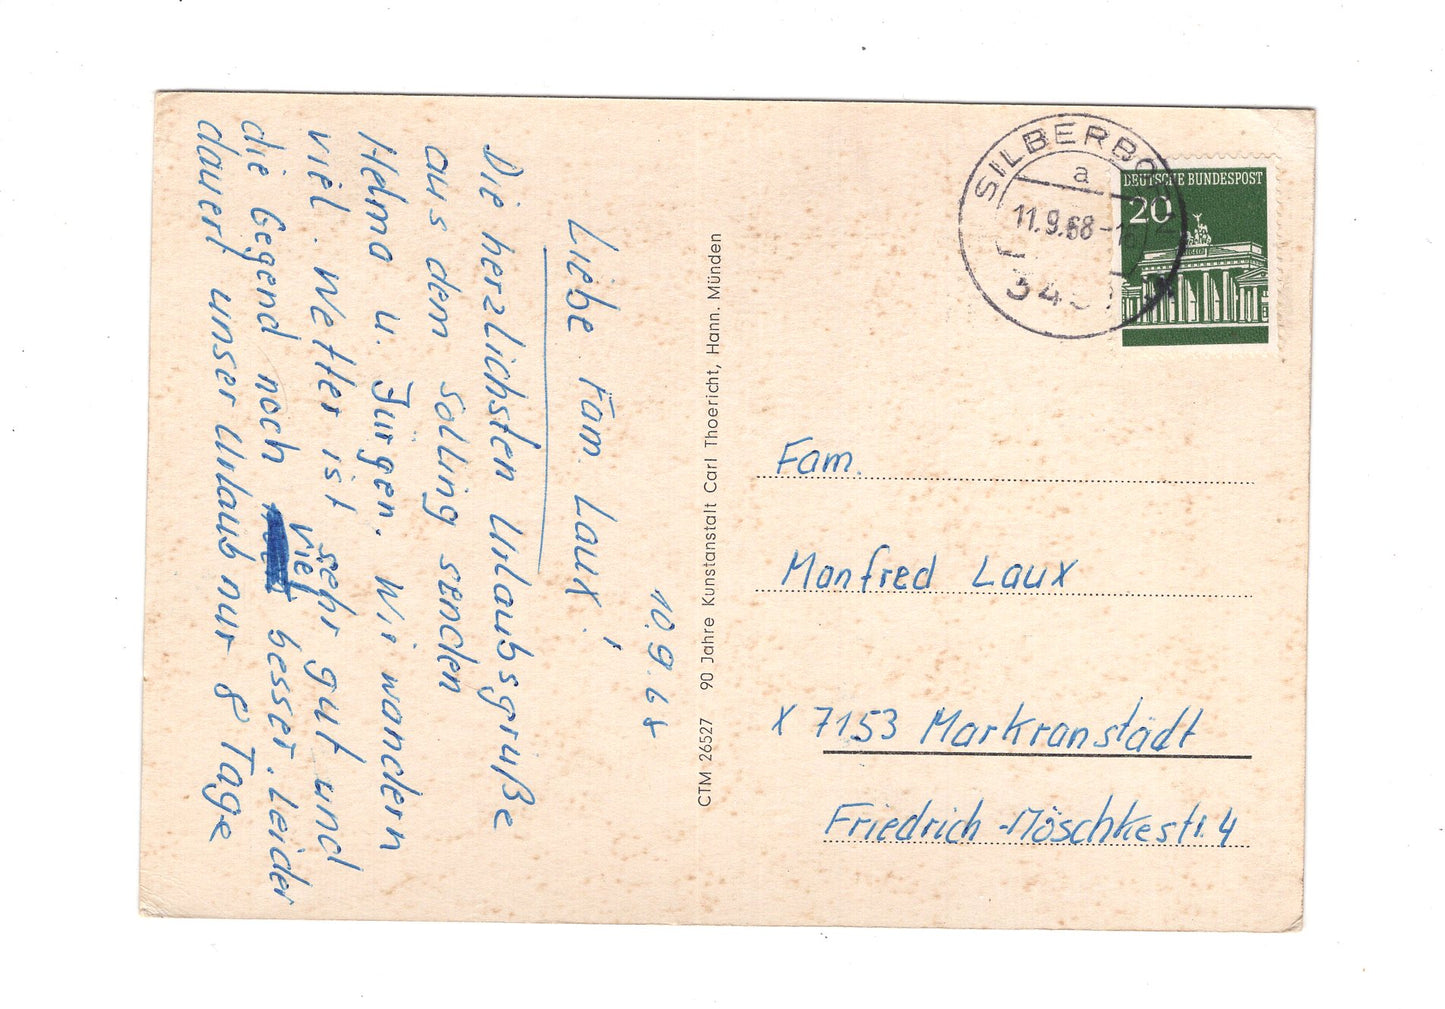 10.9.68
Liebe Fam. Laux!
Die herzlichsten Urlaubsgrüße
aus dem Solling senden
Helma u. Jürgen. Wir wandern
viel. Wetter ist sehr gut und
die Gegend noch viel besser. Leider
dauert unser Urlaub nur 8 Tage
CTM 26527 90 Jahre Kunstanstalt Carl Thoericht, Hann. Münden
SILBERBORN
a
11.9.68-18
DEUTSCHE BUNDESPOST
20
Fam.
Manfred Laux
X 7153 Markranstädt
Friedrich-Möschkestr. 4